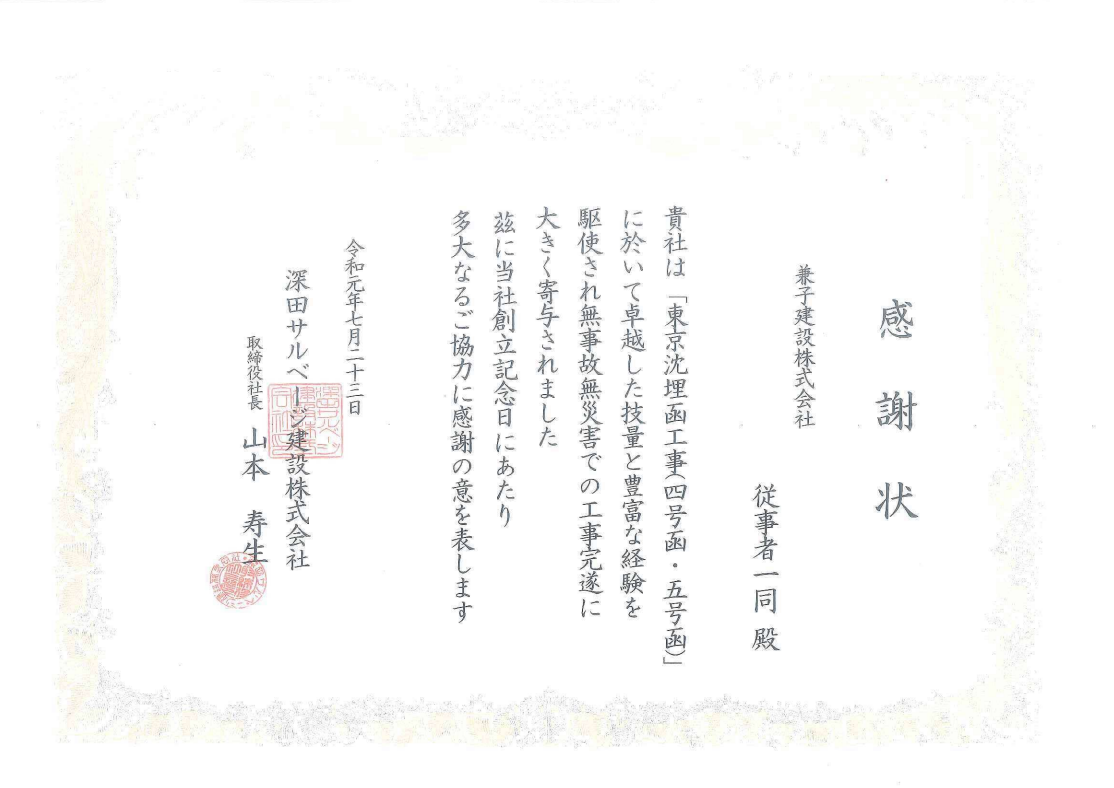 感謝状
兼子建設株式会社
従事者一同 殿
貴社は「東京沈埋函工事(四号函・五号函)」
に於いて卓越した技量と豊富な経験を
駆使され無事故無災害での工事完遂に
大きく寄与されました
茲に当社創立記念日にあたり
多大なるご協力に感謝の意を表します
令和元年七月二十三日
深田サルベージ建設株式会社
取締役社長 山本 寿生